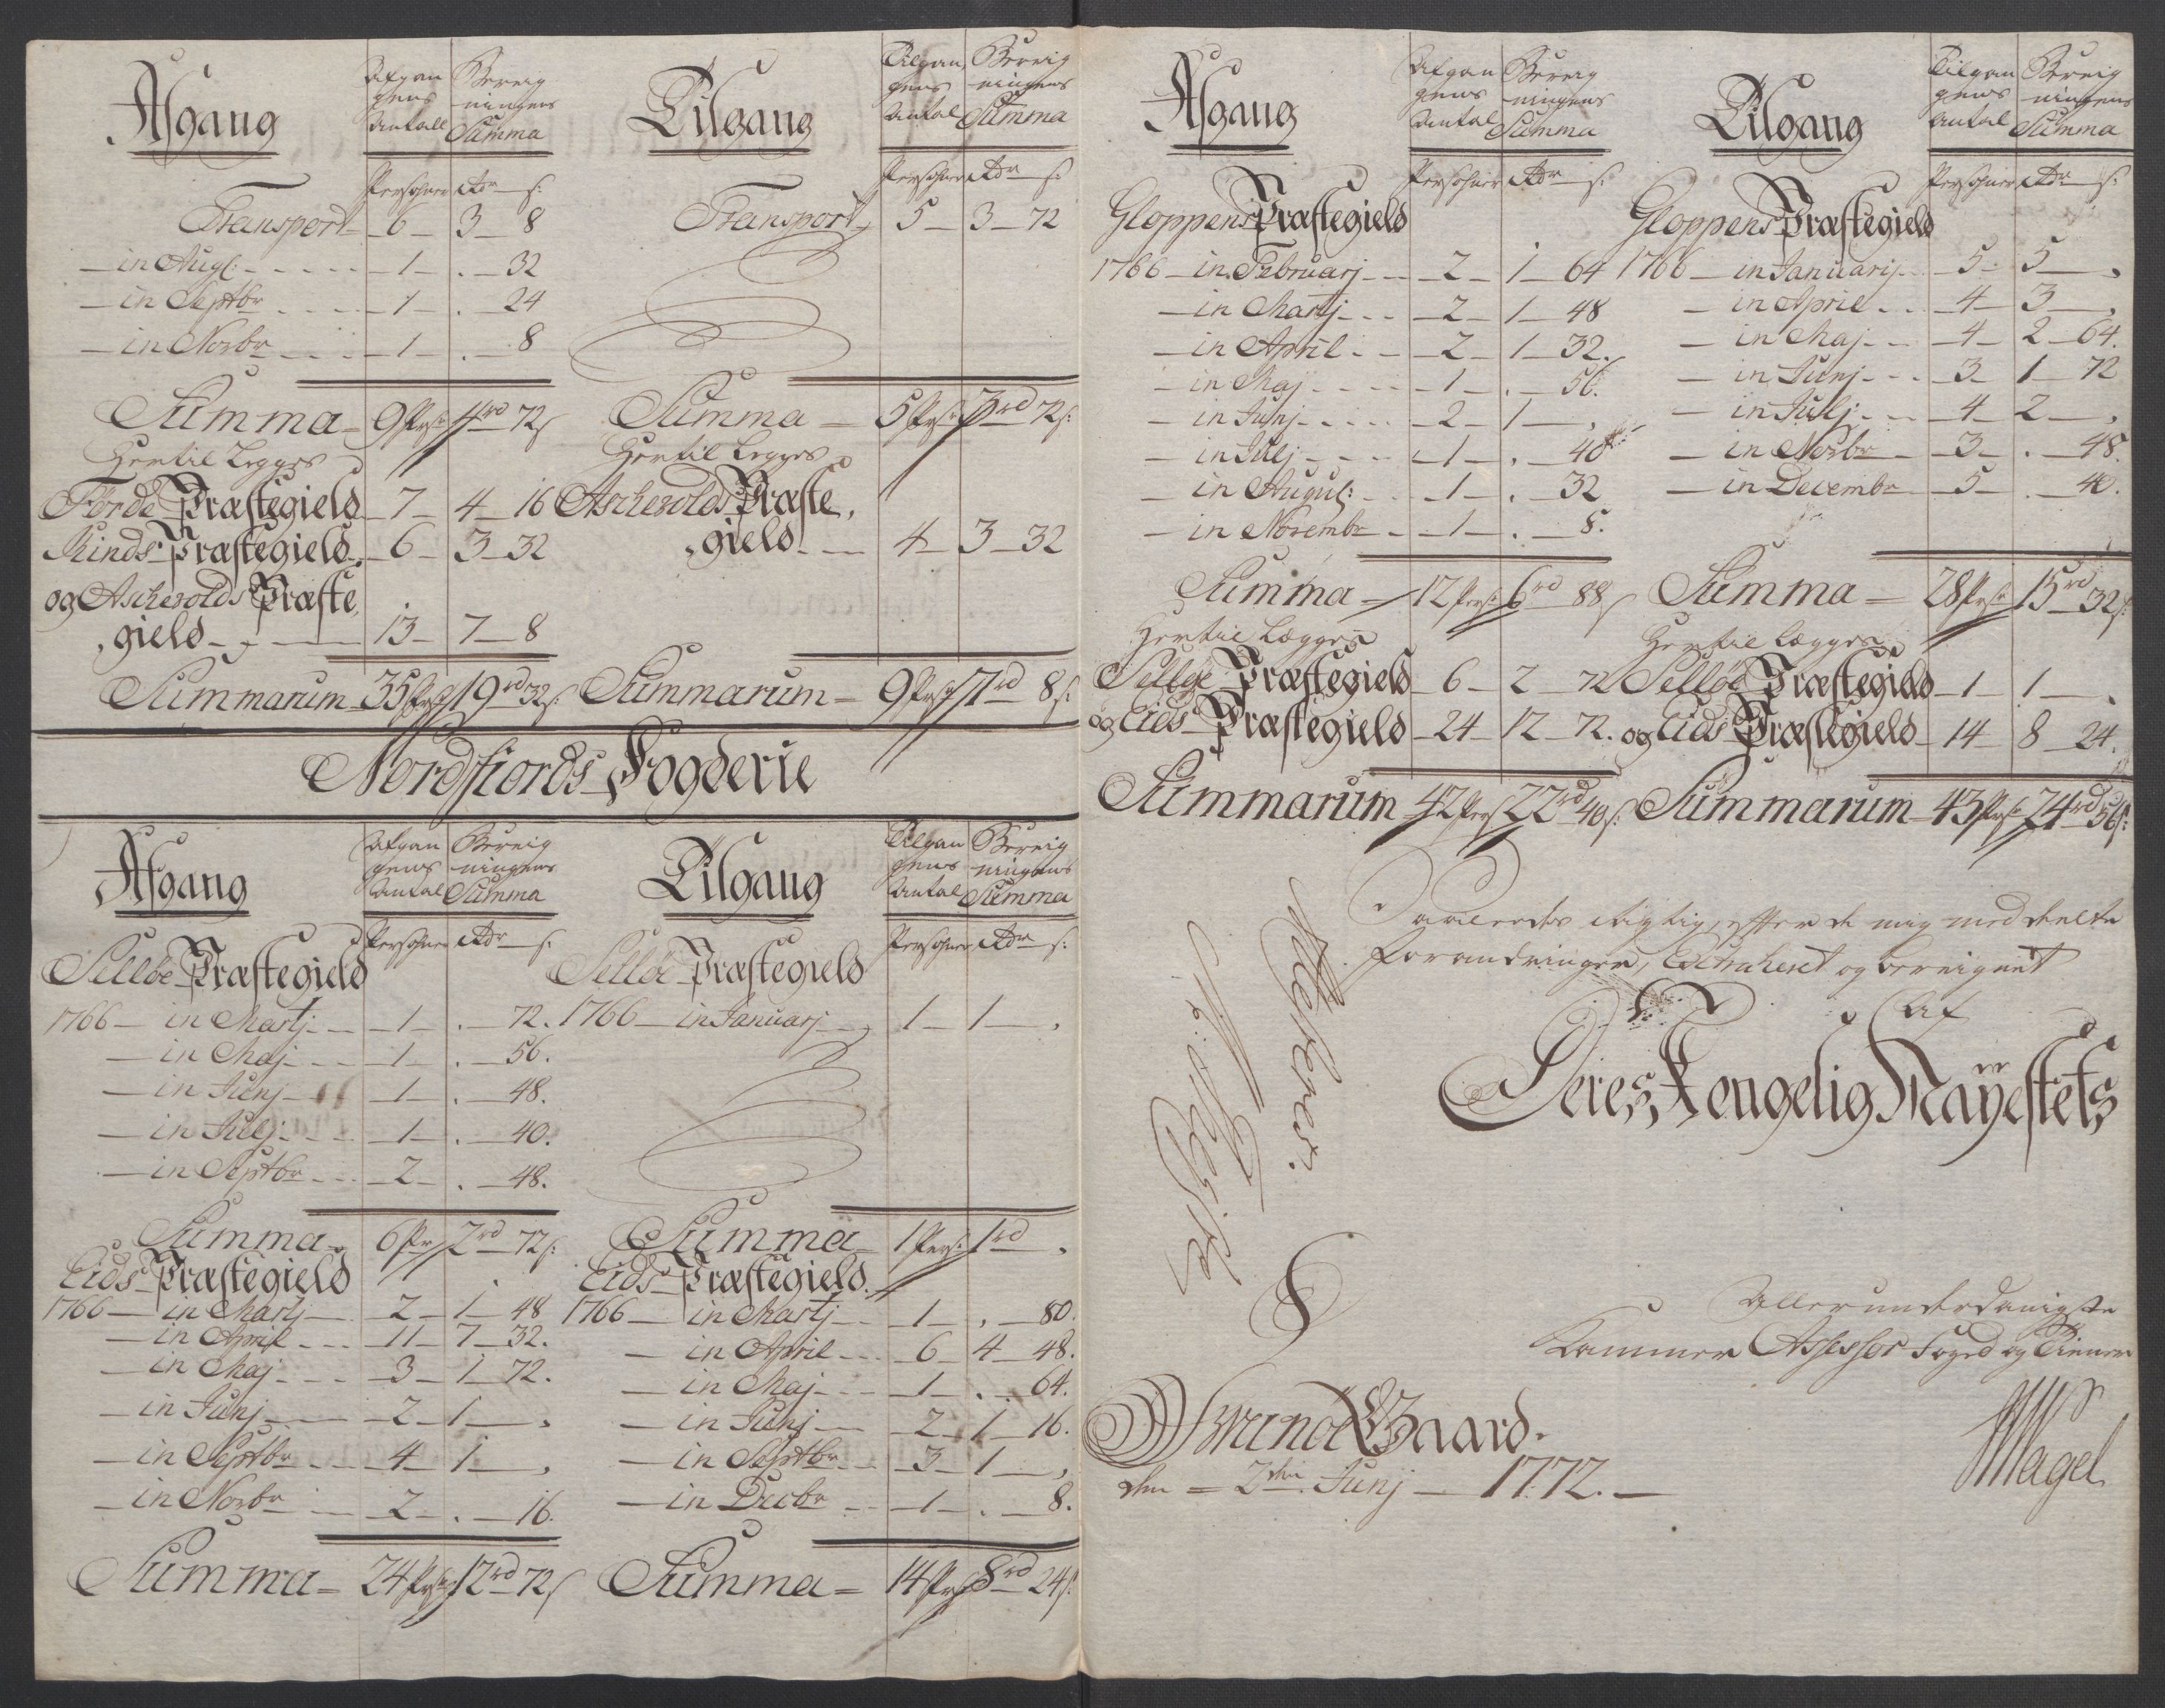 Afgang
Afgan
gens
Antall
Bereig
ningens
Summa
Persohner Rdr s:
Transport 6 3 8
in Augt: 1 . 32
in Septbr 1 . 24
in Novbr 1 . 8
Summa 9 Prs: 4rd 72s
Hertil Legges
Förde Præstegield 7 4 16
Kinds Præstegield 6 3 32
og Aschevolds Præste
gield 13 7 8
Summarum 35 Prs: 19rd 32s:
Tilgang
Tilgan
gens
Antal
Bereig
ningens
Summa
Persohner Rdr s:
Transport 5 3 72
Summa 5 Prs: 3rd 72s:
Hertil Legges
Aschevolds Præste
gield 4 3 32
Summarum 9 Prs: 7rd 8s:
Nordfiords Fogderie
Afgang
Afgan
gens
Antal
Bereig
ningens
Summa
Persohner Rdr s:
Selløe Præstegield
1766 in Martj 1 . 72.
in Maj 1 . 56.
in Junj 1 . 48.
in Julj 1 . 40.
in Septbr 2 . 48.
Summa 6 Pr 2rd 72s:
Eids Præstegield
1766 in Martj 2 1 48
in April 11 7 32.
in Maj 3 1 72.
in Junj 2 1 ,
in Septbr 4 1 ,
in Novbr 2 . 16.
Summa 24 Prs: 12rd 72s
Tilgang
Tilgan
gens
Antal
Bereig
ningens
Summa
Persohner Rdr s:
Selløe Præstegield
1766 in Januarj 1 1 ,
Summa 1 Pers: 1rd ,
Eids Præstegield
1766 in Martj 1 . 80.
in April 6 4 48.
in Maj 1 . 64.
in Junj 2 1 16.
in Septbr 3 1 ,
in Decbr 1 . 8.
Summa 14 Prs: 8rd 24s:
Afgang
Afgan
gens
Antal
Bereig
ningens
Summa
Persohner Rdr s:
Gloppens Præstegield
1766 in Februarj 2 1 64
in Martj 2 1 48
in April 2 1 32.
in Maj 1 . 56.
in Junj 2 1 ,
in Julj 1 . 40
in August: 1 . 32
in Novembr 1 . 8.
Summa 12 Pers: 6rd 88s
Hertil Lægges
Selløe Præstegield 6 2 72
og Eids Præstegield 24 12 72.
Summarum 42 Pers 22rd 40s:
Tilgang
Tilgan
gens
Antal
Bereig
ningens
Summa
Persohner Rdr s:
Gloppens Præstegield
1766 in Januarij 5 5 ,
in April 4 3 ,
in Maj 4 2 64.
in Junj 3 1 72
in Julj 4 2 ,
in Novbr 3 . 48.
in Decembr 5 . 40.
Summa 28 Prs: 15rd 32s:
Hertil Lægges
Selløe Præstegield 1 1 ,
og Eids Præstegield 14 8 24.
Summarum 43 Prs: 24rd 56s:
Saaledes rigtig, efter de mig meddeelte
forandringer, Extraheret og bereignet
Af
Deres Kongelig Mayestets
Allerunderdanigste
Kammer Assessor Foged og Tiener
Svanöe Gaard.
den 2den Junj 1772.